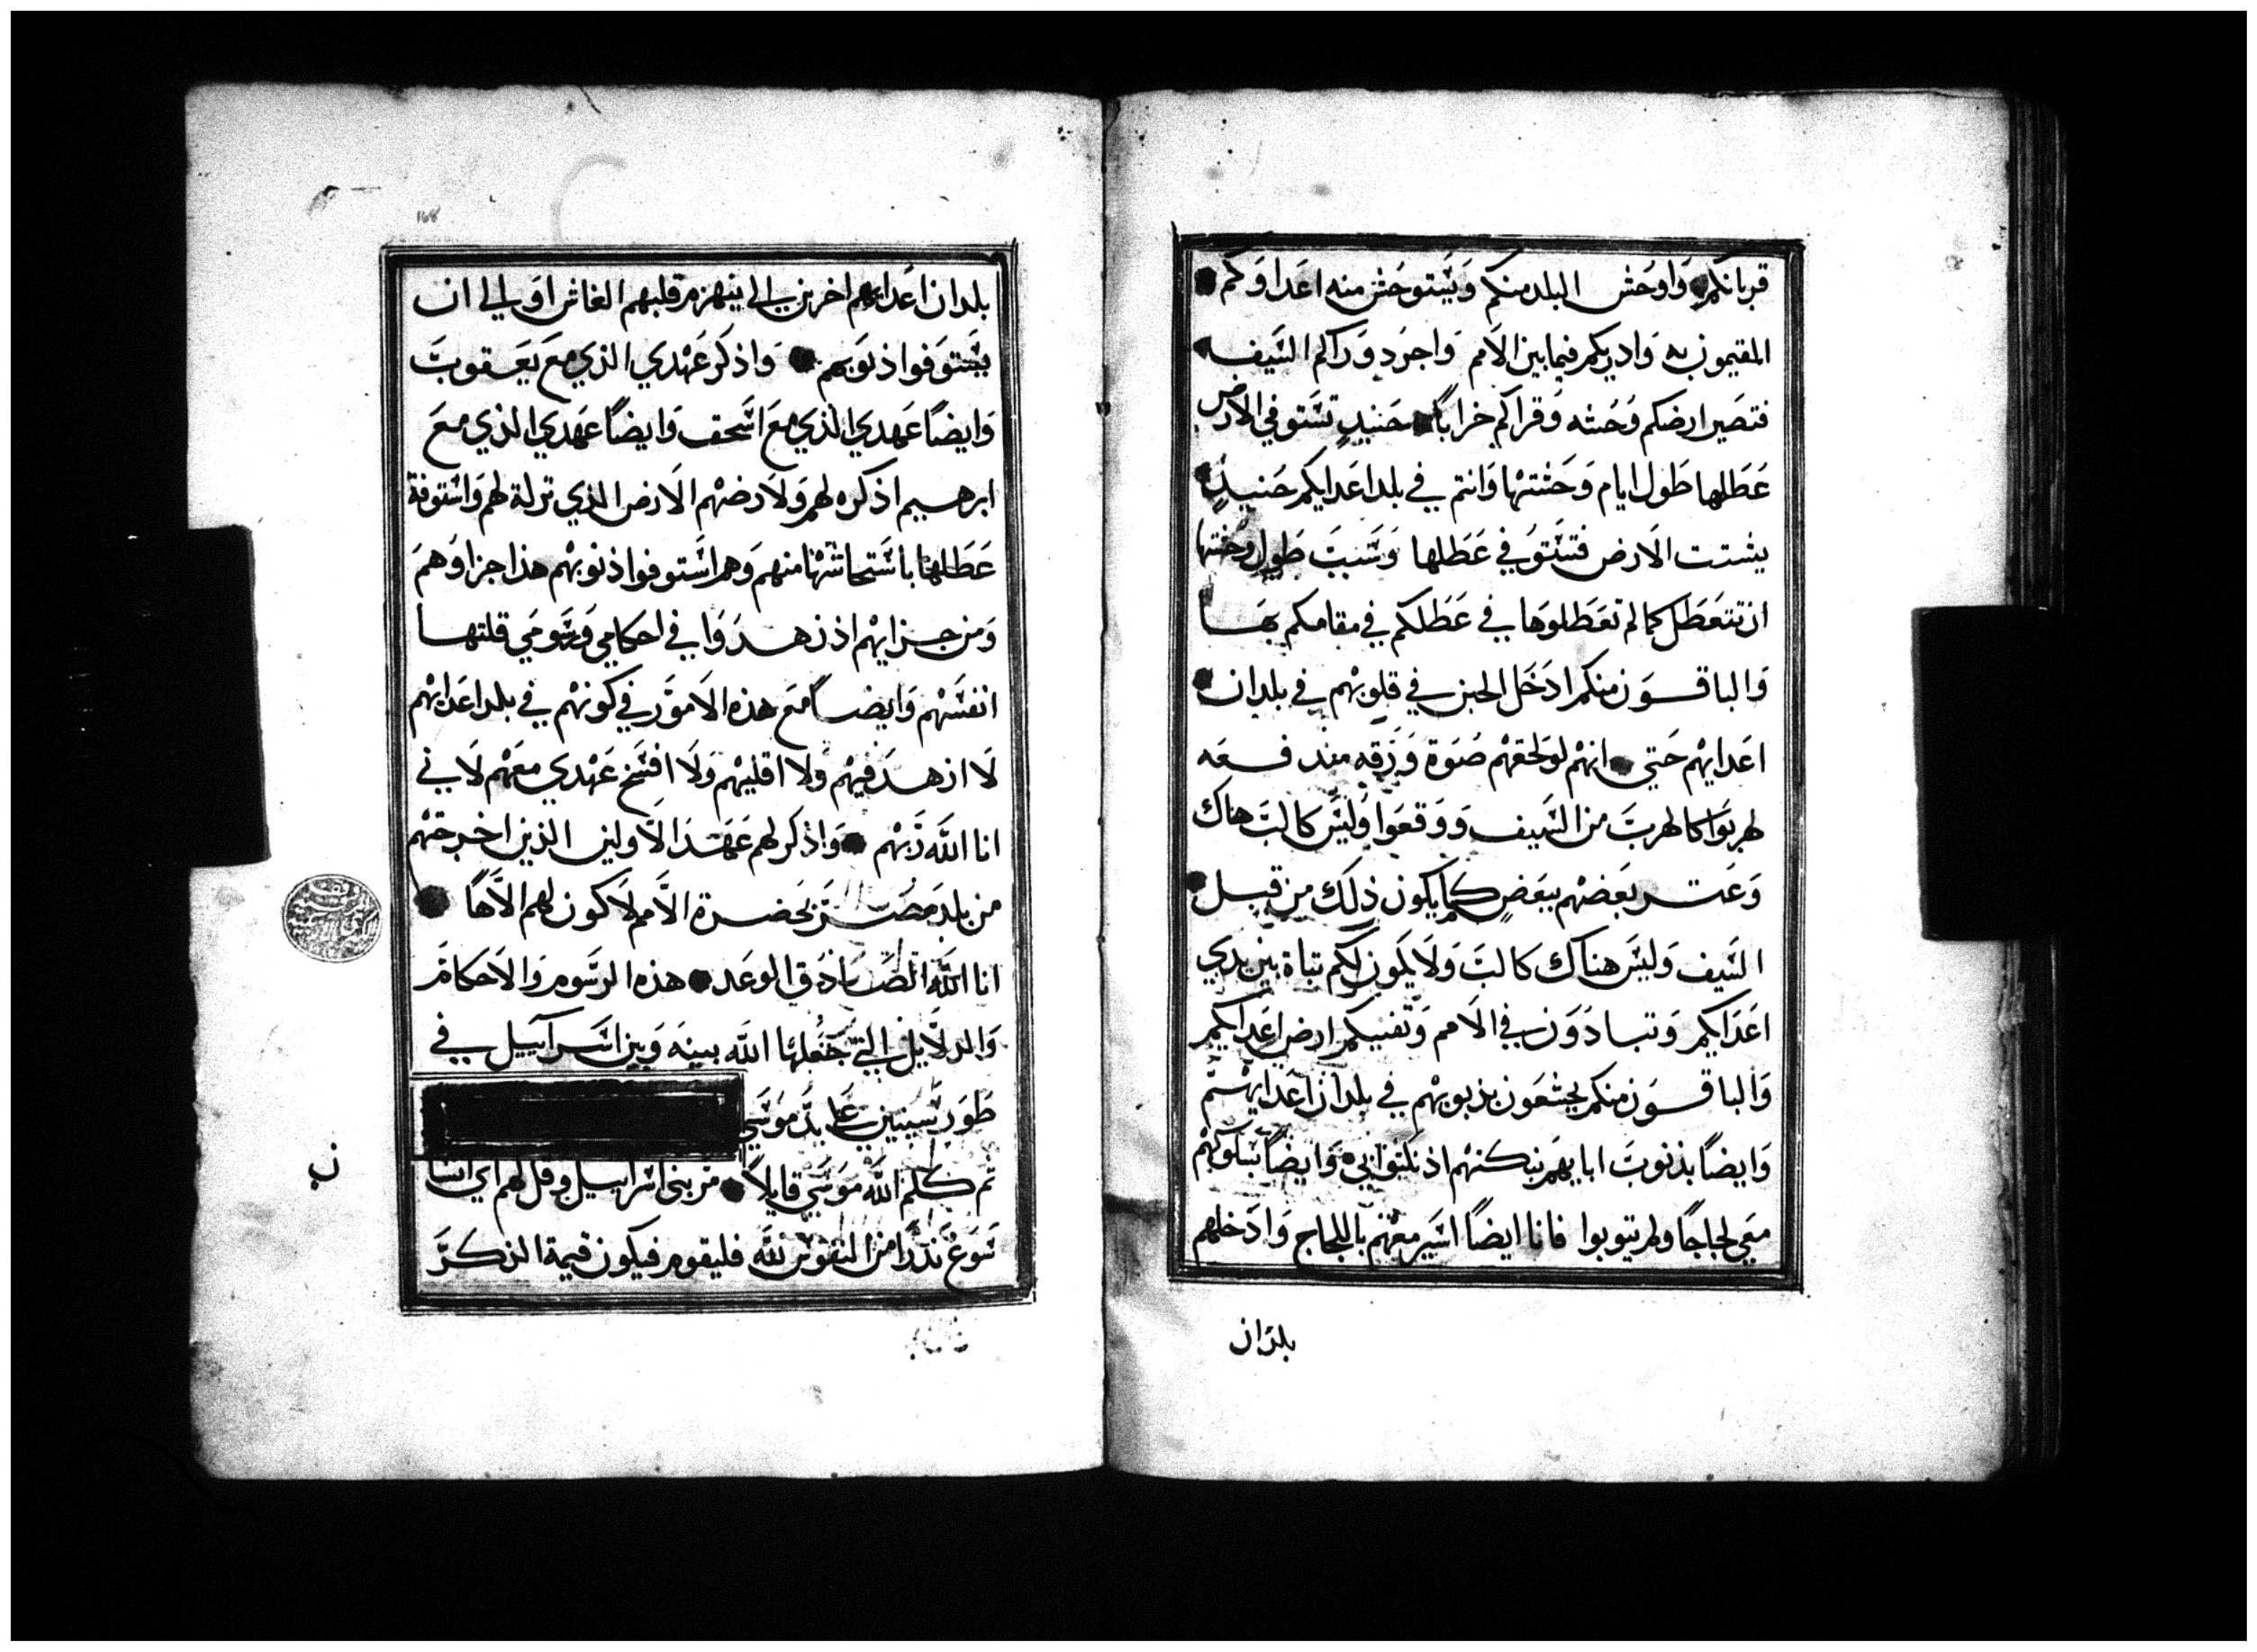 قربانكم وَاوحَش البلد منكم وَيَستوحَش منه اعَداوَكم
المقيمون به وَادريكم فيما بين الاَمم وَاجرد وَرَاكم السَيف
فتصَير ارضكم وَحشه وَقراكم خرابًا حَنيدٍ تستوفي الارض
عَطَلها طَول ايام وَحَشتها وَانتم في بلد اعَدايكم حَنيدٍ
يسَتت الاَرض فتستوُفي عَطَلها وَسَببَ طَول وحَشتها
ان تتعَطَل كما لم تعَطَلوَها في عَطَلكم في مقامكم بهَا
وَالباقوَن منكم ادَخَل الجبن في قلوبهْم في بلدان
اعَدايهْم حَتي انهْم لو لحقهْم صَوَة وَرَقه مندفعَه
لهربَوا كالهربَ من السَيف وَوَقعَوا وَليسَ كالبَ هناك
وَعَتر بعَضهْم ببعَضٍ كما يكون ذلك من قبل
السَيف وَليسَ هناك كالبَ وَلاَ يكون لكم تباة بين يدي
اعَدَايكم وَتبادوَن في الاَمم وَتفنيكم ارض اعَدايكم
وَالباقوَن منكم يجتمعَون بذبوبهْم في بلدان اعَدايهْم
وَايضًا بذنوبَ ابايهَم نبكتهْم اذ نكتوَا بي وَايضًا بسَلوكهْم
معَي لجاجًا ولم يتوبوا فانا ايضًا اسَير معَهْم باللجاج وَادَخلهم
بلدَان
168
بلدان اعَدايهم اخرين الي ينهزم قلبهم الغاش اوَ الي ان
يسَتوَفوا ذنوَبهم وَاذكرَ عَهْدي الذي معَ يعَقوبَ
وَايضًا عَهدي الذي معَ اسَحق وَايضًا عَهدي الذي معَ
ابرهيم اذكره لهم وَلاَرضهْم الاَرض الذي تركة لهم وَاسَتوفة
عَطَلهْا باسَتحاشهْا منهم وَهم اسَتوفوا ذنوبهْم هذا جزاوَهمَ
وَمن جزايهْم اذ زهدوَا في احكامي وَرسَومَي قلتها
انفسَهْم وَايضًا معَ هذه الاَموَر في كونهْم في بلد اعَدايهْم
لاَ ازهدَ فيهْم ولا اقليهْم وَلاَ افسَخ عَهْدي معَهْم لاَني
انا اللَه رَبهْم وَاذكر لهم عَهَدَ الاَولين الذين اخرجتهْم
من بلد مصَر بحَضرة الاَمم لاَكون لهم الاَهًا
انا اللَه الصَادَق الوعَد هذه الرسَوم وَالاَحكامَ
وَالدلاَيل التي جَعَلها اللَه بينهَ وَبين اسَرآييل في
طَورَ سَينين عَلي يدَ موَسَي
تم كلم اللَه موَسَي قايلاً مر بني اسَراييل وقل لهم اي انسَا
ن
نوَعَ نذرًا من النفوَس للَه فليقوم فيكون قيمة الذكرَ